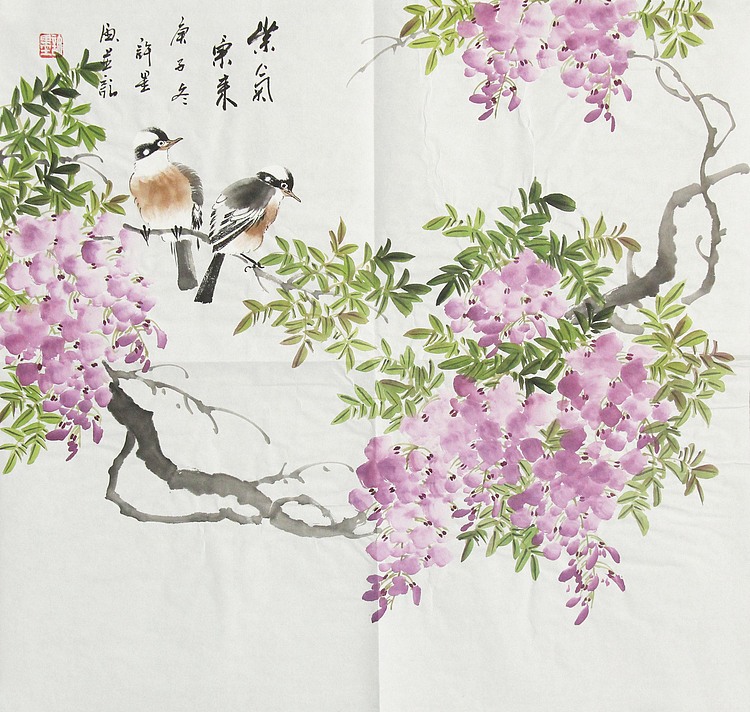 紫氣
東來
庚子冬
許墨
画並記